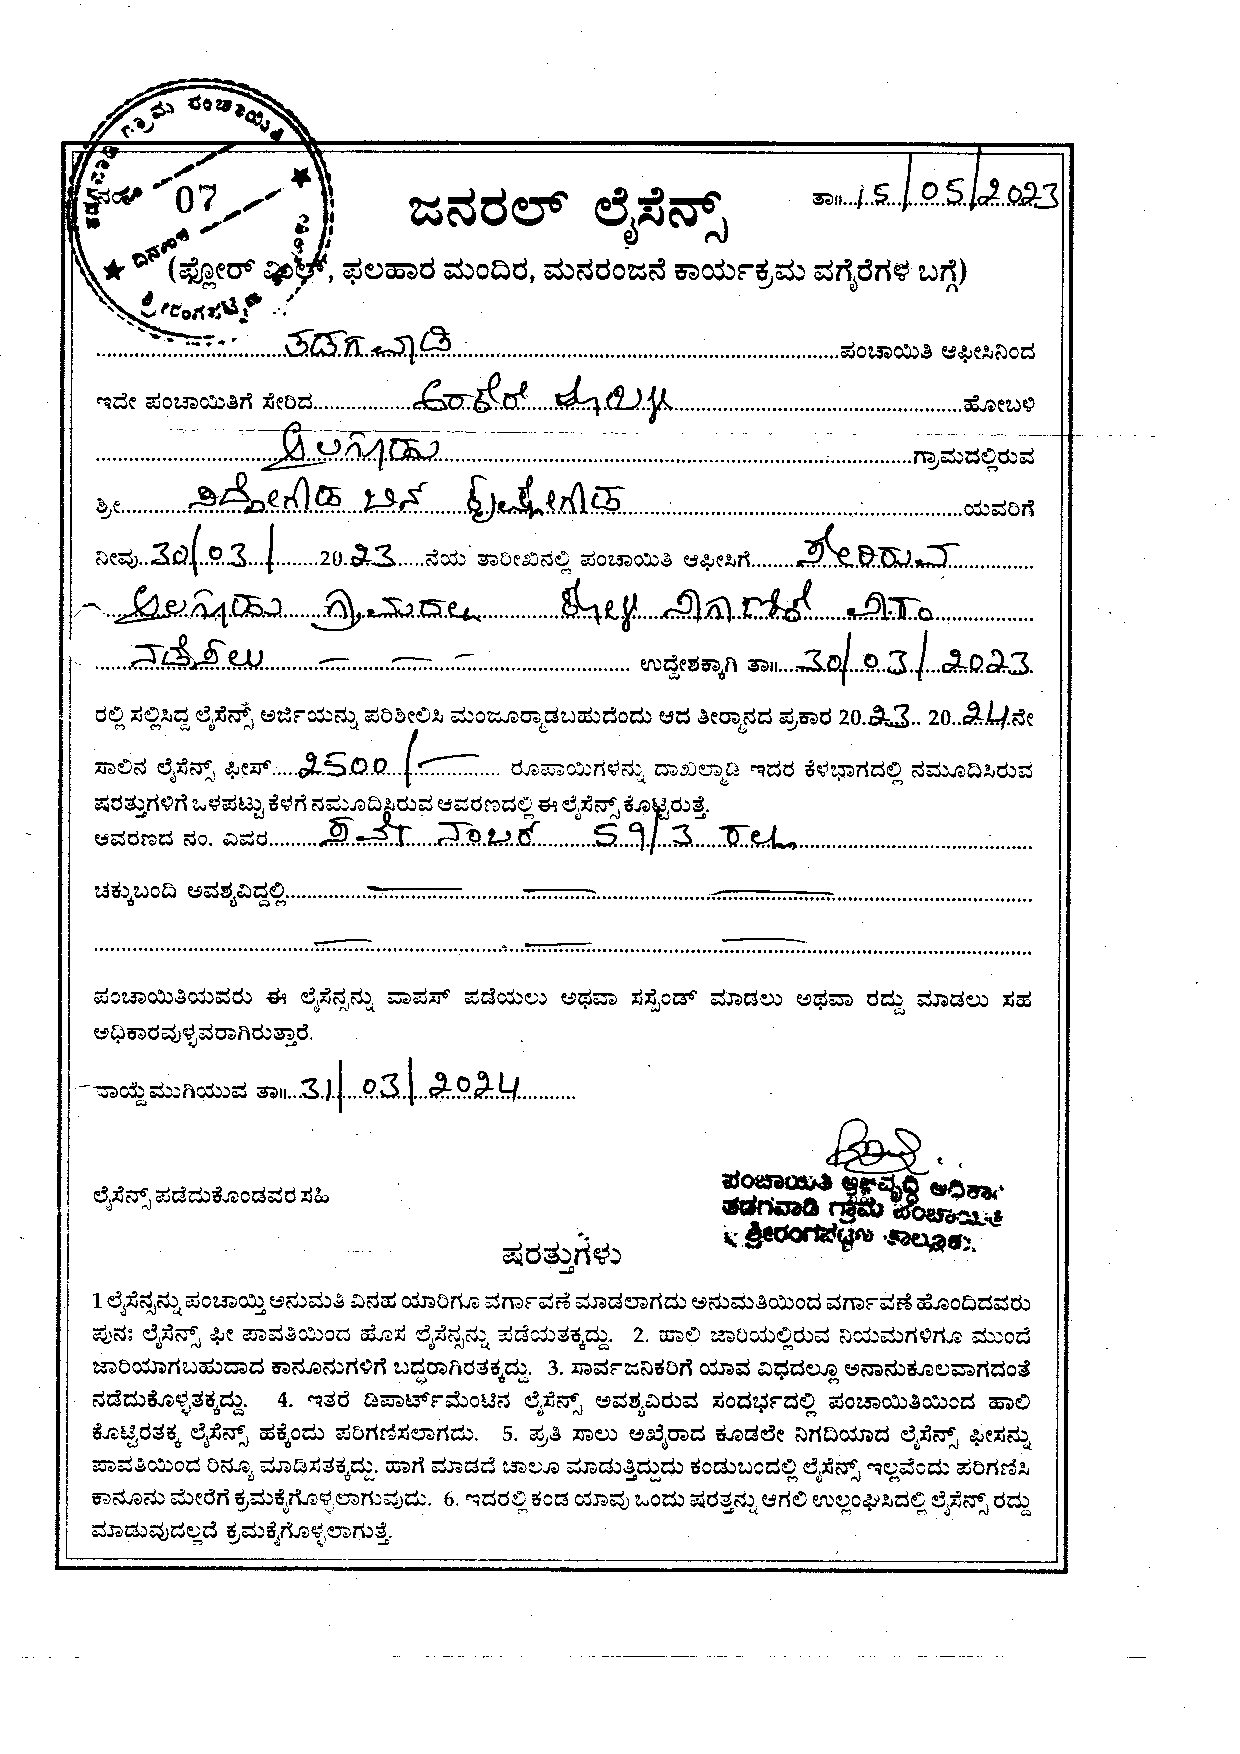 ಗ್ರಾಮ ಪಂಚಾಯಿತಿ
07
ದಿನಾಂಕ
ಜನರಲ್ ಲೈಸೆನ್ಸ್
ತಾ॥ 15/05/2023
(ಫ್ಲೋರ್ ಮಿಲ್, ಫಲಹಾರ ಮಂದಿರ, ಮನರಂಜನೆ ಕಾರ್ಯಕ್ರಮ ವಗೈರೆಗಳ ಬಗ್ಗೆ)
ತಡಗವಾಡಿ ಪಂಚಾಯಿತಿ ಆಫೀಸಿನಿಂದ
ಇದೇ ಪಂಚಾಯಿತಿಗೆ ಸೇರಿದ ಹೋಬಳಿ
ಗ್ರಾಮದಲ್ಲಿರುವ
ಶ್ರೀ ಬಿನ್ ಯವರಿಗೆ
ನೀವು 30/03/ 2023 ನೆಯ ತಾರೀಖಿನಲ್ಲಿ ಪಂಚಾಯಿತಿ ಆಫೀಸಿಗೆ ಸೇರಿರುವ
ನಡೆಸಲು ಉದ್ದೇಶಕ್ಕಾಗಿ ತಾ॥ 30/03/2023
ರಲ್ಲಿ ಸಲ್ಲಿಸಿದ್ದ ಲೈಸೆನ್ಸ್ ಅರ್ಜಿಯನ್ನು ಪರಿಶೀಲಿಸಿ ಮಂಜೂರ್ಮಾಡಬಹುದೆಂದು ಆದ ತೀರ್ಮಾನದ ಪ್ರಕಾರ 2023 2024 ನೇ
ಸಾಲಿನ ಲೈಸೆನ್ಸ್ ಫೀಸ್ 2500/- ರೂಪಾಯಿಗಳನ್ನು ದಾಖಲ್ಮಾಡಿ ಇದರ ಕೆಳಭಾಗದಲ್ಲಿ ನಮೂದಿಸಿರುವ
ಷರತ್ತುಗಳಿಗೆ ಒಳಪಟ್ಟು ಕೆಳಗೆ ನಮೂದಿಸಿರುವ ಆವರಣದಲ್ಲಿ ಈ ಲೈಸೆನ್ಸ್ ಕೊಟ್ಟಿರುತ್ತೆ.
ಆವರಣದ ನಂ. ವಿವರ ಸರ್ವೆ ನಂಬರ್ 59/3
ಚಕ್ಕುಬಂದಿ ಅವಶ್ಯವಿದ್ದಲ್ಲಿ
ಪಂಚಾಯಿತಿಯವರು ಈ ಲೈಸೆನ್ಸನ್ನು ವಾಪಸ್ ಪಡೆಯಲು ಅಥವಾ ಸಸ್ಪೆಂಡ್ ಮಾಡಲು ಅಥವಾ ರದ್ದು ಮಾಡಲು ಸಹ
ಅಧಿಕಾರವುಳ್ಳವರಾಗಿರುತ್ತಾರೆ.
ವಾಯ್ದೆ ಮುಗಿಯುವ ತಾ॥ 31/03/2024
ಪಂಚಾಯಿತಿ ಅಭಿವೃದ್ಧಿ ಅಧಿಕಾರಿ
ಲೈಸೆನ್ಸ್ ಪಡೆದುಕೊಂಡವರ ಸಹಿ
ತಡಗವಾಡಿ ಗ್ರಾಮ ಪಂಚಾಯಿತಿ
ಶ್ರೀರಂಗಪಟ್ಟಣ ತಾಲ್ಲೂಕು.
ಷರತ್ತುಗಳು
1 ಲೈಸೆನ್ಸನ್ನು ಪಂಚಾಯ್ತಿ ಅನುಮತಿ ವಿನಹ ಯಾರಿಗೂ ವರ್ಗಾವಣೆ ಮಾಡಲಾಗದು ಅನುಮತಿಯಿಂದ ವರ್ಗಾವಣೆ ಹೊಂದಿದವರು
ಪುನಃ ಲೈಸೆನ್ಸ್ ಫೀ ಪಾವತಿಯಿಂದ ಹೊಸ ಲೈಸೆನ್ಸನ್ನು ಪಡೆಯತಕ್ಕದ್ದು. 2. ಹಾಲಿ ಜಾರಿಯಲ್ಲಿರುವ ನಿಯಮಗಳಿಗೂ ಮುಂದೆ
ಜಾರಿಯಾಗಬಹುದಾದ ಕಾನೂನುಗಳಿಗೆ ಬದ್ಧರಾಗಿರತಕ್ಕದ್ದು. 3. ಸಾರ್ವಜನಿಕರಿಗೆ ಯಾವ ವಿಧದಲ್ಲೂ ಅನಾನುಕೂಲವಾಗದಂತೆ
ನಡೆದುಕೊಳ್ಳತಕ್ಕದ್ದು. 4. ಇತರೆ ಡಿಪಾರ್ಟ್‌ಮೆಂಟಿನ ಲೈಸೆನ್ಸ್ ಅವಶ್ಯವಿರುವ ಸಂದರ್ಭದಲ್ಲಿ ಪಂಚಾಯಿತಿಯಿಂದ ಹಾಲಿ
ಕೊಟ್ಟಿರತಕ್ಕ ಲೈಸೆನ್ಸ್ ಹಕ್ಕೆಂದು ಪರಿಗಣಿಸಲಾಗದು. 5. ಪ್ರತಿ ಸಾಲು ಅಖೈರಾದ ಕೂಡಲೇ ನಿಗದಿಯಾದ ಲೈಸೆನ್ಸ್ ಫೀಸನ್ನು
ಪಾವತಿಯಿಂದ ರಿನ್ಯೂ ಮಾಡಿಸತಕ್ಕದ್ದು. ಹಾಗೆ ಮಾಡದೆ ಚಾಲೂ ಮಾಡುತ್ತಿದ್ದುದು ಕಂಡುಬಂದಲ್ಲಿ ಲೈಸೆನ್ಸ್ ಇಲ್ಲವೆಂದು ಪರಿಗಣಿಸಿ
ಕಾನೂನು ಮೇರೆಗೆ ಕ್ರಮಕೈಗೊಳ್ಳಲಾಗುವುದು. 6. ಇದರಲ್ಲಿ ಕಂಡ ಯಾವು ಒಂದು ಷರತ್ತನ್ನು ಆಗಲಿ ಉಲ್ಲಂಘಿಸಿದಲ್ಲಿ ಲೈಸೆನ್ಸ್ ರದ್ದು
ಮಾಡುವುದಲ್ಲದೆ ಕ್ರಮಕೈಗೊಳ್ಳಲಾಗುತ್ತೆ.